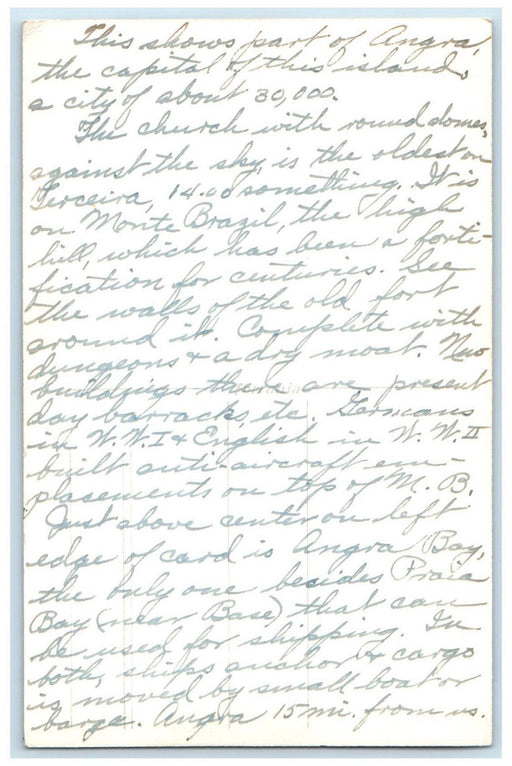 This shows part of Angra,
the capital of this island,
a city of about 30,000.
The church with round domes,
against the sky, is the oldest on
Terceira, 14.00 something. It is
on Monte Brazil, the high
hill, which has been a forti-
fication for centuries. See
the walls of the old fort
around it. Complete with
dungeons & a dry moat. New
buildings there are present
day barracks, etc. Germans
in W.W.I & English in W.W.II
built anti-aircraft em-
placements on top of M.B.
Just above center on left
edge of card is Angra Bay,
the only one besides Praia
Bay (near Base) that can
be used for shipping. In
both, ships anchor & cargo
is moved by small boat or
barge. Angra 15 mi. from us.